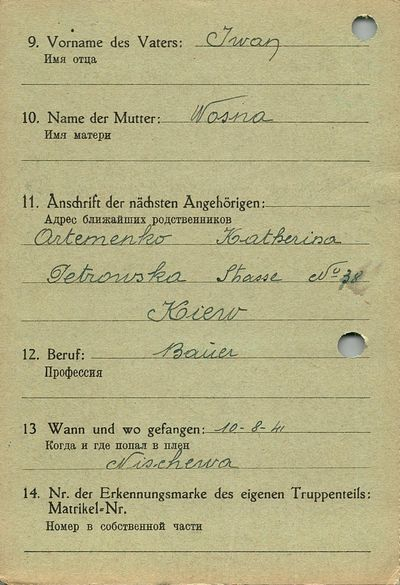 9. Vorname des Vaters: Iwan
Имя отца
10. Name der Mutter: Wosna
Имя матери
11. Anschrift der nächsten Angehörigen:
Адрес ближайших родственников
Artemenko Katherina
Petrowska Strasse No 38
Kiew
12. Beruf: Bauer
Профессия
13 Wann und wo gefangen: 10-8-41
Когда и где попал в плен
Nischewa
14. Nr. der Erkennungsmarke des eigenen Truppenteils:
Matrikel-Nr.
Номер в собственной части